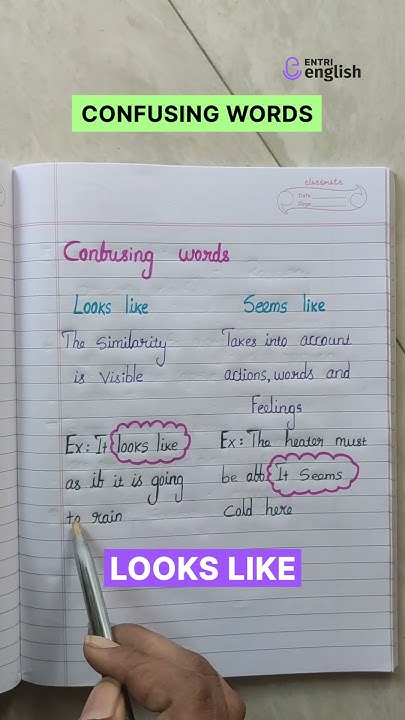 ENTRI
english
CONFUSING WORDS
classmate
Date
Page
Confusing words
Looks like
The Similarity
is Visible
Ex: It looks like
as if it is going
to rain
Seems like
Takes into account
actions, words and
Feelings
Ex: The heater must
be off It Seams
Cold here
LOOKS LIKE